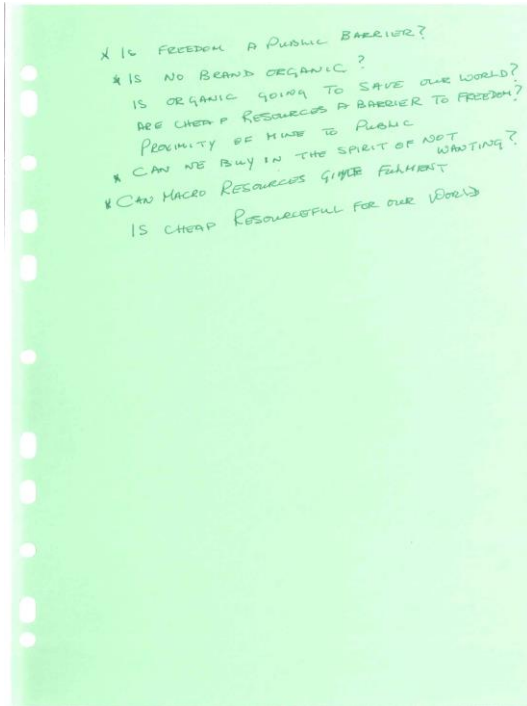 * IS FREEDOM A PUBLIC BARRIER?
* IS NO BRAND ORGANIC?
IS ORGANIC GOING TO SAVE OUR WORLD?
ARE CHEAP RESOURCES A BARRIER TO FREEDOM?
PROXIMITY OF MINE TO PUBLIC
* CAN WE BUY IN THE SPIRIT OF NOT WANTING?
* CAN MACRO RESOURCES FULMENT
IS CHEAP RESOURCEFUL FOR OUR WORLD